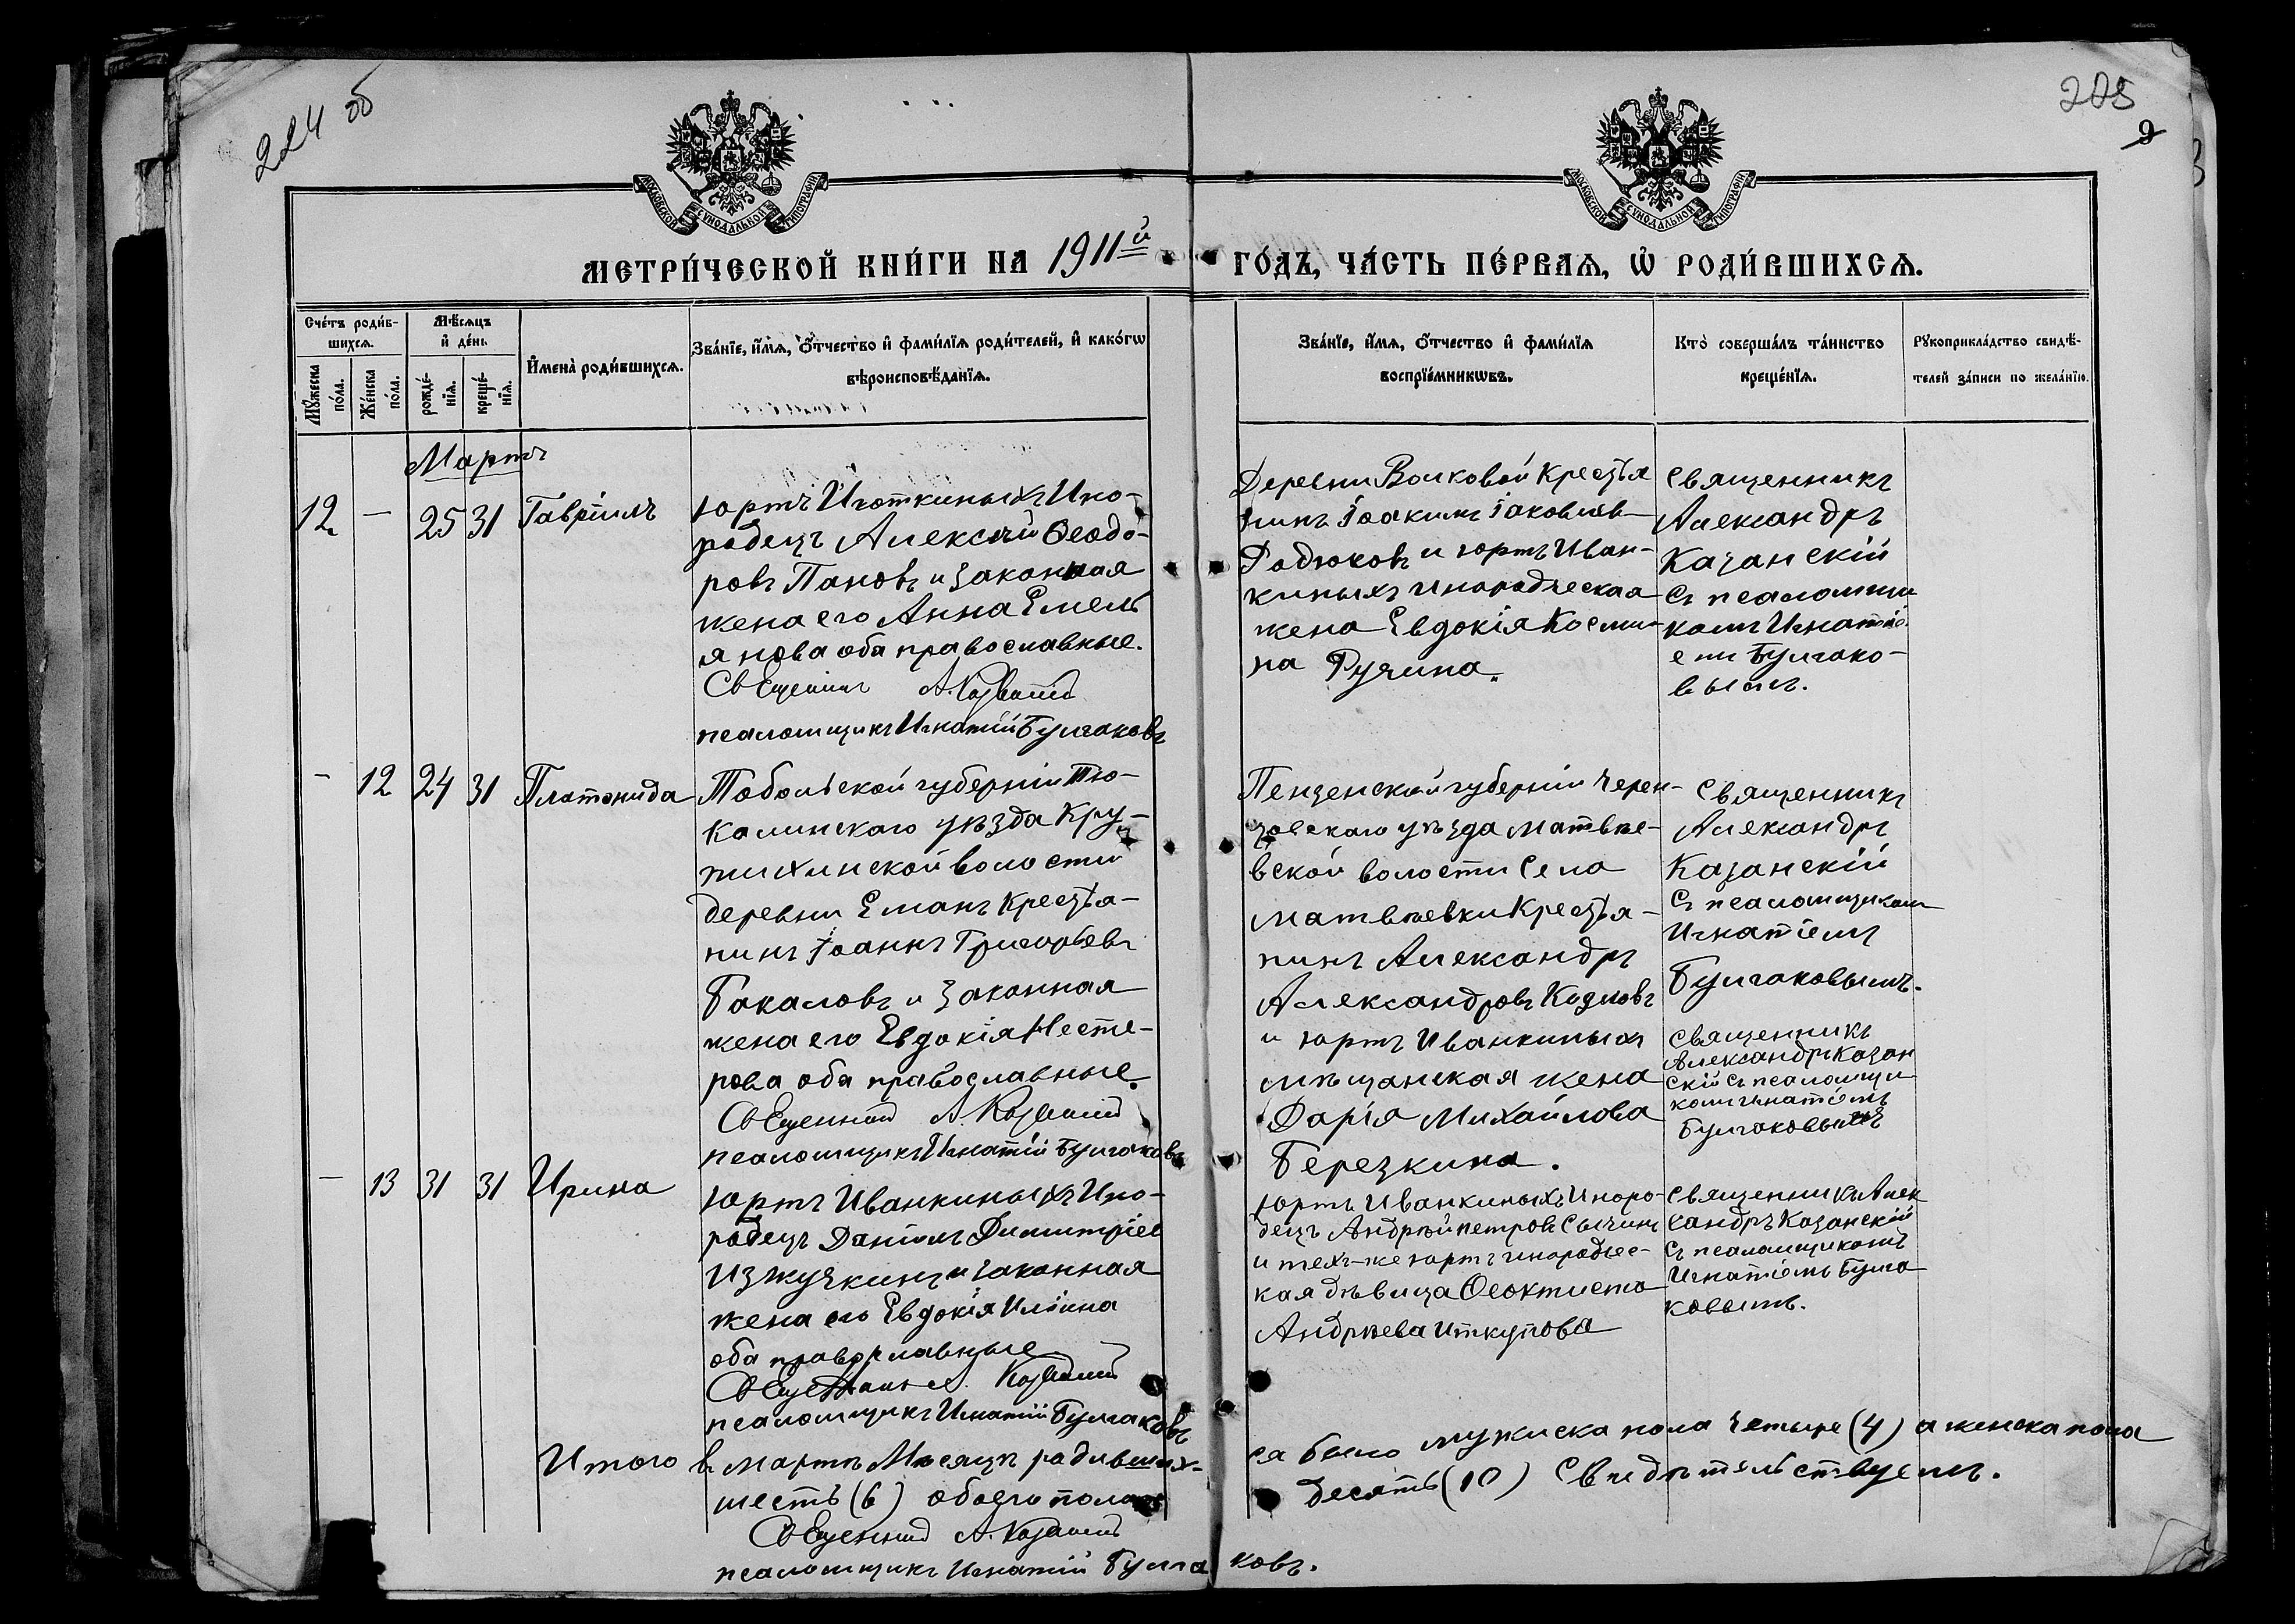 224 об
225
2
МОСКОВСКОЙ СѴНОДАЛЬНОЙ ТИПОГРАФІИ
МОСКОВСКОЙ СѴНОДАЛЬНОЙ ТИПОГРАФІИ
МЕТРИ́ЧЕСКОЙ КНИ́ГИ НА 1911й ГО́ДЪ, ЧА́СТЬ ПЕ́РВАѦ, Ѡ҆ РОДИ́ВШИХСѦ.
Счéтъ роди́в-
шихсѧ.
Мꙋ́жеска
по́ла.
Же́нска
по́ла.
Мѣ́сѧцъ
и҆ де́нь
рожде́-
нїѧ.
креще́-
нїѧ.
И҆мена̀ роди́вшихсѧ.
Зва́нїе, и҆́мѧ, ѻ҆́тчество и҆ фами́лїѧ роди́телей, и҆ како́гѡ
вѣроисповѣ́данїѧ.
Зва́нїе, и҆́мѧ, ѻ҆́тчество и҆ фами́лїѧ
воспрїе́мникѡвъ.
Кто̀ соверша́лъ та́инство
креще́нїѧ.
Рꙋкоприкла́дство свидѣ́-
телей за́писи по жела́нїю.
Мартъ
12 — 25 31 Гавріилъ
юртъ Иготкиныхъ Ино-
родецъ Алексѣй Ѳеодо-
ровъ Пановъ и законная
жена его Анна Емель
янова оба православные.
Священникъ А. Казанскій
псаломщикъ Игнатій Булгаковъ
Деревни Волковой Крестья
нинъ Іоакимъ Іаковлевъ
Родюковъ и юртъ Иван-
киныхъ инородческая
жена Евдокія Косми-
на Ручина.
Священникъ
Александръ
Казанскій
съ псаломщи
комъ Игнатіе
емъ Булгако-
вымъ.
— 12 24 31 Платонида
Тобольской губерніи Тю-
калинскаго уѣзда Кру-
тихинской волости
деревни Еманъ Крестья-
нинъ Іоаннъ Григорьевъ
Бакаловъ и законная
жена его Евдокія Несте-
рова оба православные.
Священникъ А. Казанскій
псаломщикъ Игнатій Булгаковъ
Пензенской губерніи Черен-
зовскаго уѣзда Матвѣе-
вской волости Села
Матвѣевки Крестья-
нинъ Александръ
Александровъ Козловъ
и юртъ Иванкиныхъ
мѣщанская жена
Дарія Михайлова
Березкина.
Священникъ
Александръ
Казанскій
съ псаломщикомъ
Игнатіемъ
Булгаковымъ.
Священникъ
Александръ Казан
скій съ псаломщи
комъ Игнатіемъ
Булгаковымъ
— 13 31 31 Ирина
юртъ Иванкиныхъ Ино-
родецъ Даніилъ Димитріев
Изжучкинъ и законная
жена его Евдокія Ильина
оба православные
Священникъ А. Казанскій
псаломщикъ Игнатій Булгаковъ
юртъ Иванкиныхъ Иноро-
децъ Андрѣй Петровъ Сычинъ
и тѣхъ-же юртъ инородчес-
кая дѣвица Ѳеоктиста
Андрѣева Иткупова
Священникъ Алек
сандръ Казанскій
съ псаломщикомъ
Игнатіемъ Булга
ковымъ.
Итого в Мартѣ Мѣсяцѣ родивших-
ся было мужска пола четыре (4) а женска пола
шесть (6) обоего пола
десять (10) Свидѣтельствуемъ.
Священникъ А. Казанскій
псаломщикъ Игнатій Булгаковъ.